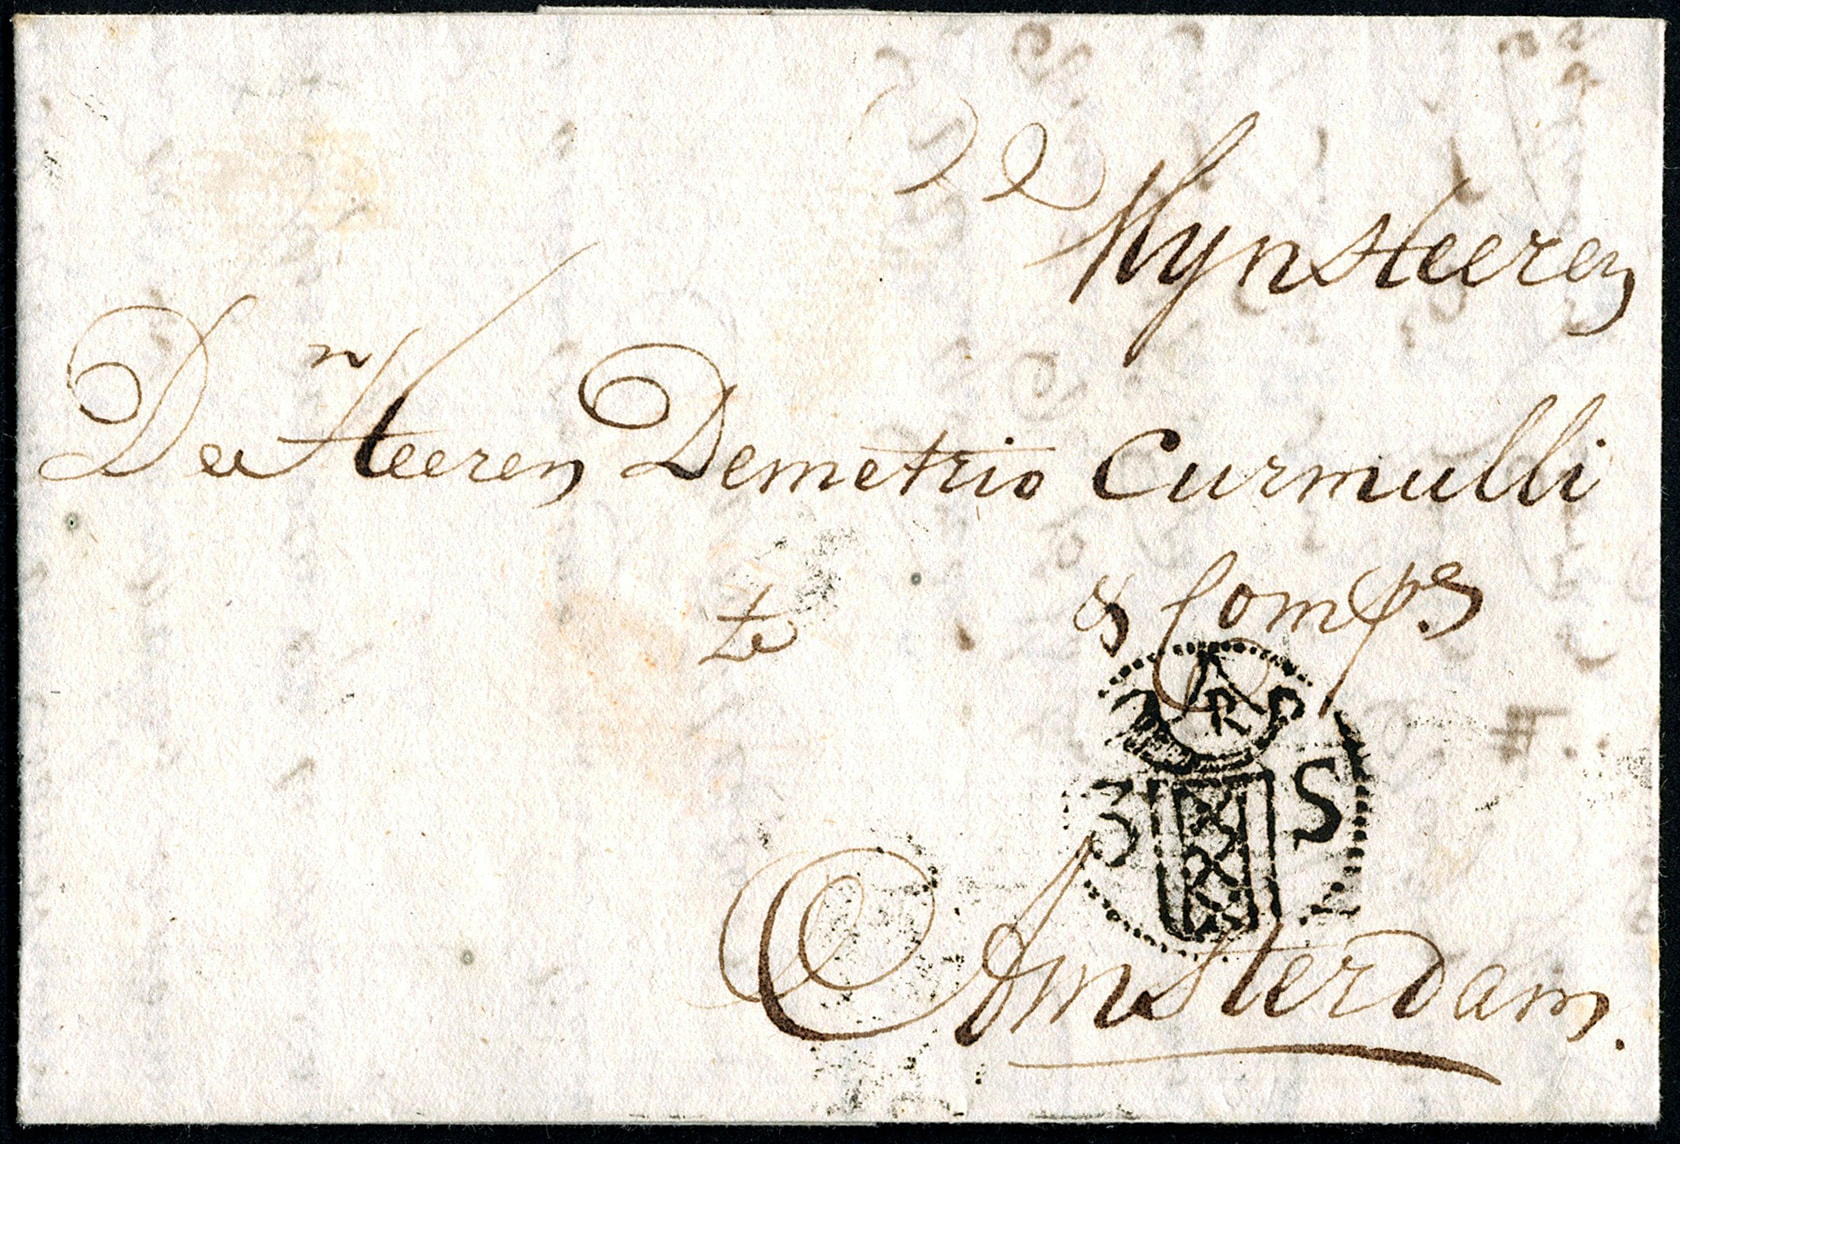 Mynsheeren
De Heeren Demetrio Curmulli
te & Comps
R
3 S
Amsterdam.